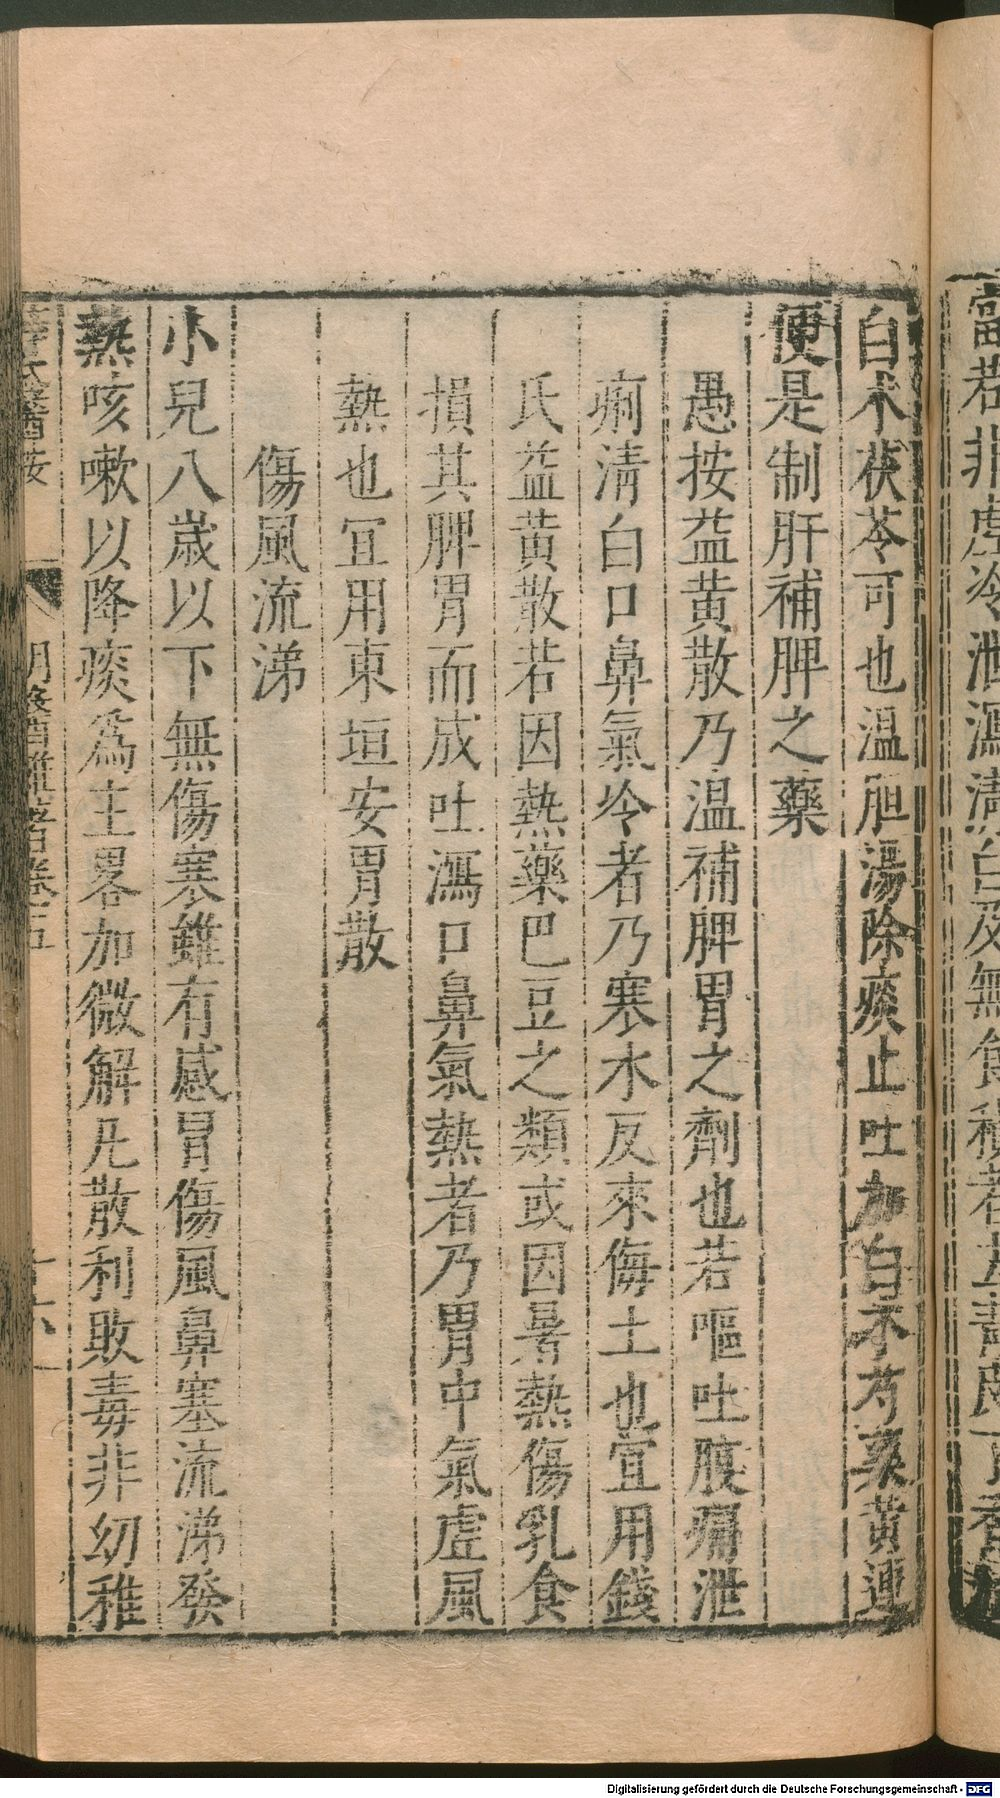 當若非虛冷泄瀉清白及無食積者
白术茯苓可也温胆湯除痰止吐加白术芍藥黄連
便是制肝補脾之藥
愚按益黄散乃温補脾胃之劑也若嘔吐腹痛泄
痢清白口鼻氣冷者乃寒水反來侮土也宜用錢
氏益黄散若因熱藥巴豆之類或因暑熱傷乳食
損其脾胃而成吐瀉口鼻氣熱者乃胃中氣虛風
熱也宜用東垣安胃散
傷風流涕
小兒八歲以下無傷寒雖有感冒傷風鼻塞流涕發
熱咳嗽以降痰爲主畧加微解凡散利敗毒非幼稚
明醫雜著卷五
Digitalisierung gefördert durch die Deutsche Forschungsgemeinschaft - DFG